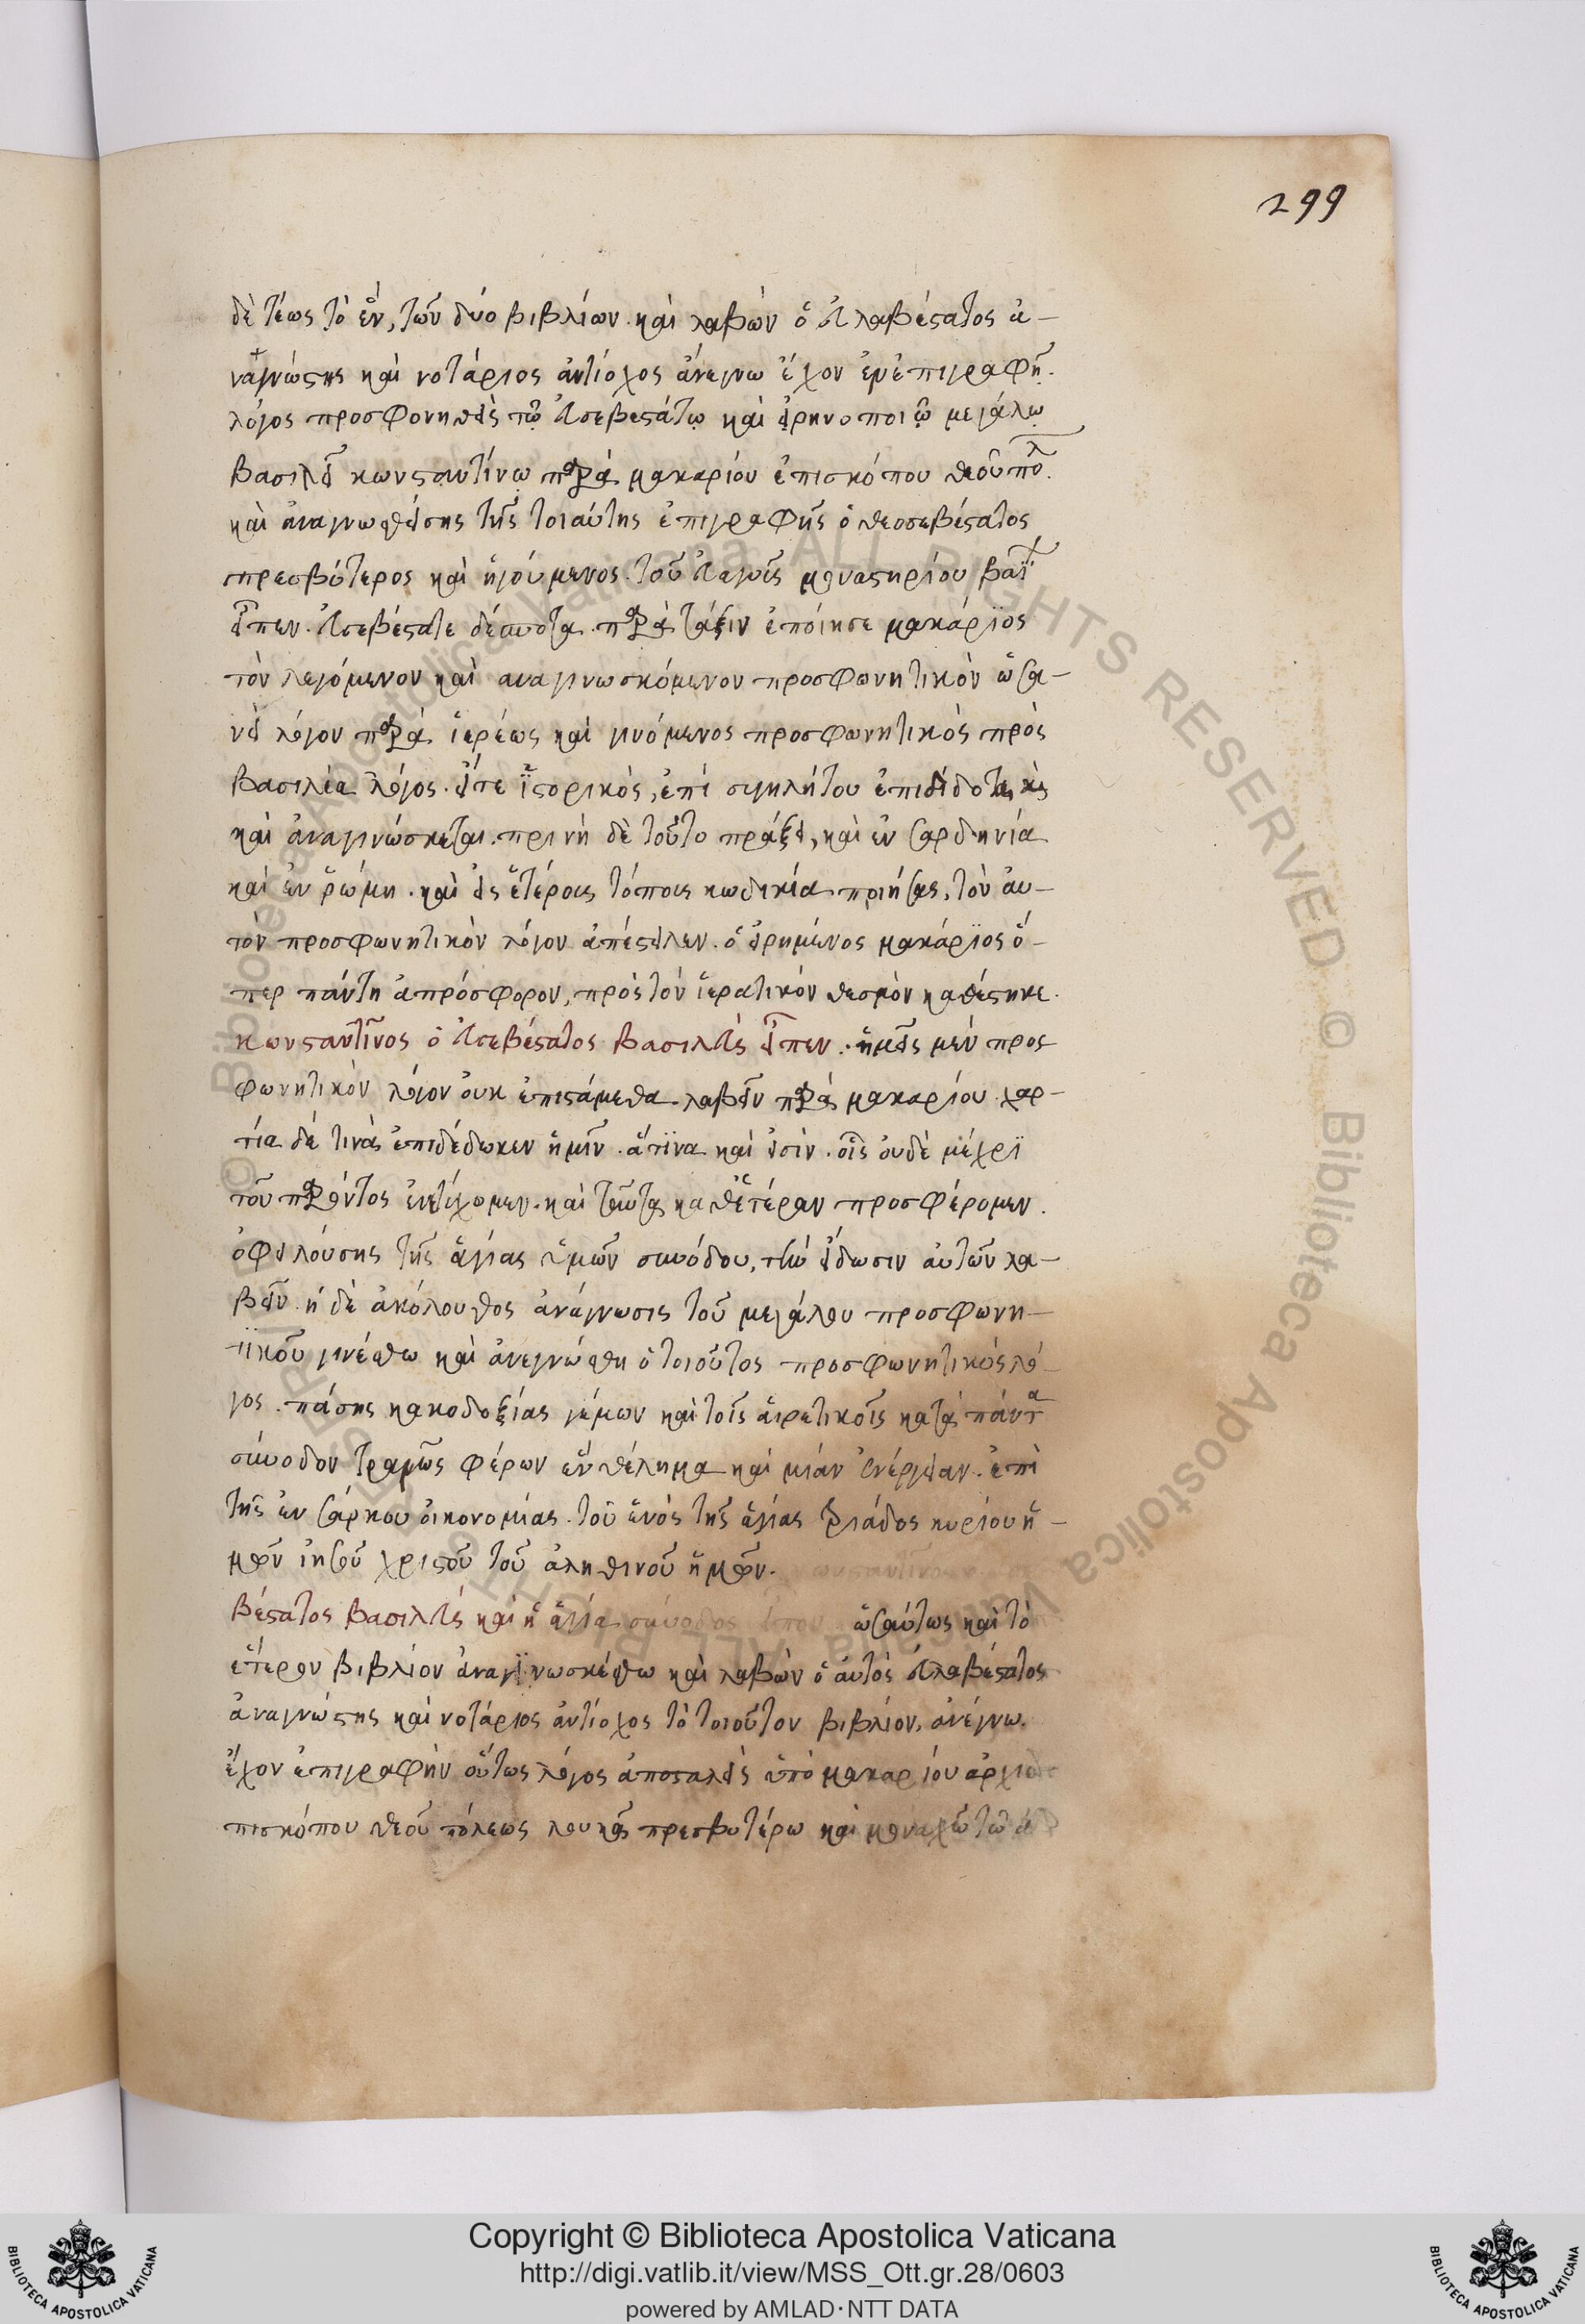 299
δὲ τέως τὸ ἓν, τῶν δύο βιβλίων. καὶ λαβὼν ὁ εὐλαβέστατος ἀ-
ναγνώστης καὶ νοτάριος ἀντίοχος ἀνέγνω ἔχον ἐν ἐπιγραφῇ.
λόγος προσφονηθεὶς τῶ εὐσεβεστάτω καὶ εἰρηνοποιῶ μεγάλω
βασιλεῖ κωνσταντίνω παρὰ μακαρίου ἐπισκόπου θεουπολ
καὶ ἀναγνωσθείσης τῆς τοιαύτης ἐπιγραφῆς ὁ θεοσεβέστατος
πρεσβύτερος καὶ ἡγούμενος τοῦ εὐαγοῦς μοναστηρίου βαϊ
εἶπεν. εὐσεβέστατε δέσποτα. παρὰ τάξιν ἐποίησε μακάριος
τὸν λεγόμενον καὶ αναγινωσκόμενον προσφωνητικὸν ὡσα-
νεὶ λόγον παρὰ ἱερέως καὶ γινόμενος προσφωνητικὸς πρὸς
βασιλέα λόγος. εἴτε ἱστορικὸς, ἐπὶ συγκλήτου ἐπιδίδοται
καὶ ἀναγινώσκεται. πρινὴ δὲ τοῦτο πράξει, καὶ ἐν σαρδηνία
καὶ ἐν ῥώμη. καὶ εἰς ἑτέροις τόποις κωδικία ποιήσας, τὸν αυ-
τὸν προσφωνητικὸν λόγον ἀπέστειλεν. ὁ εἰρημένος μακάριος ὅ-
περ πάντη ἀπρόσφορον, πρὸς τὸν ἱερατικὸν θεσμὸν καθέστηκε.
κωνσταντῖνος ὁ εὐσεβέστατος βασιλεὺς εἶπεν. ἡμεῖς μὲν προς
φωνητικὸν λόγον ουκ ἐπιστάμεθα λαβεῖν παρὰ μακαρίου. χαρ-
τία δέ τινὰ ἐπιδέδωκεν ἡμῖν. ἅτινα καὶ εἰσὶν. οἷς οὐδὲ μέχρι
τοῦ παρόντος ἐνετύχομεν. καὶ ταῦτα καθ ἑτέραν προσφέρομεν.
ὀφειλούσης τῆς ἁγίας ὑμῶν συνόδου, τὴν εἴδωσιν αὐτῶν λα-
βεῖν. ἡ δὲ ἀκόλουθος ἀνάγνωσις τοῦ μεγάλου προσφωνη-
τικοῦ γινέσθω καὶ ἀνεγνώσθη ὁ τοιοῦτος προσφωνητικὸς λό-
γος. πάσης κακοδοξίας γέμων καὶ τοῖς αἱρετικοῖς κατὰ πάντα
σύνοδον τρανῶς φέρων ἓν θέλημα καὶ μίαν ἐνέργειαν. ἐπὶ
τῆς ἐν σάρκου οἰκονομίας. τοῦ ἑνὸς τῆς ἁγίας τριάδος κυρίου ἡ-
μῶν ἰησοῦ χριστοῦ τοῦ ἀληθινοῦ ἡμῶν.
βέστατος βασιλεὺς καὶ ἡ ἁγία σύνοδος εἶπον ὡσαύτως καὶ τὸ
ἕτερον βιβλίον ἀναγινωσκέσθω καὶ λαβὼν ὁ αὐτὸς εὐλαβέστατος
ἀναγνώστης καὶ νοτάριος ἀντίοχος τὸ τοιοῦτον βιβλίον, ἀνέγνω.
ἔχον ἐπιγραφὴν οὕτως λόγος ἀποσταλεὶς ὑπὸ μακαρίου ἀρχιε
πισκόπου θεοῦ πόλεως λουκᾶ πρεσβυτέρω καὶ μοναχῶ τῶ
Copyright © Biblioteca Apostolica Vaticana
http://digi.vatlib.it/view/MSS_Ott.gr.28/0603
powered by AMLAD·NTT DATA
BIBLIOTECA APOSTOLICA VATICANA
BIBLIOTECA APOSTOLICA VATICANA
© Biblioteca Apostolica Vaticana ALL RIGHTS RESERVED © Biblioteca Apostolica Vaticana ALL RIGHTS RESERVED